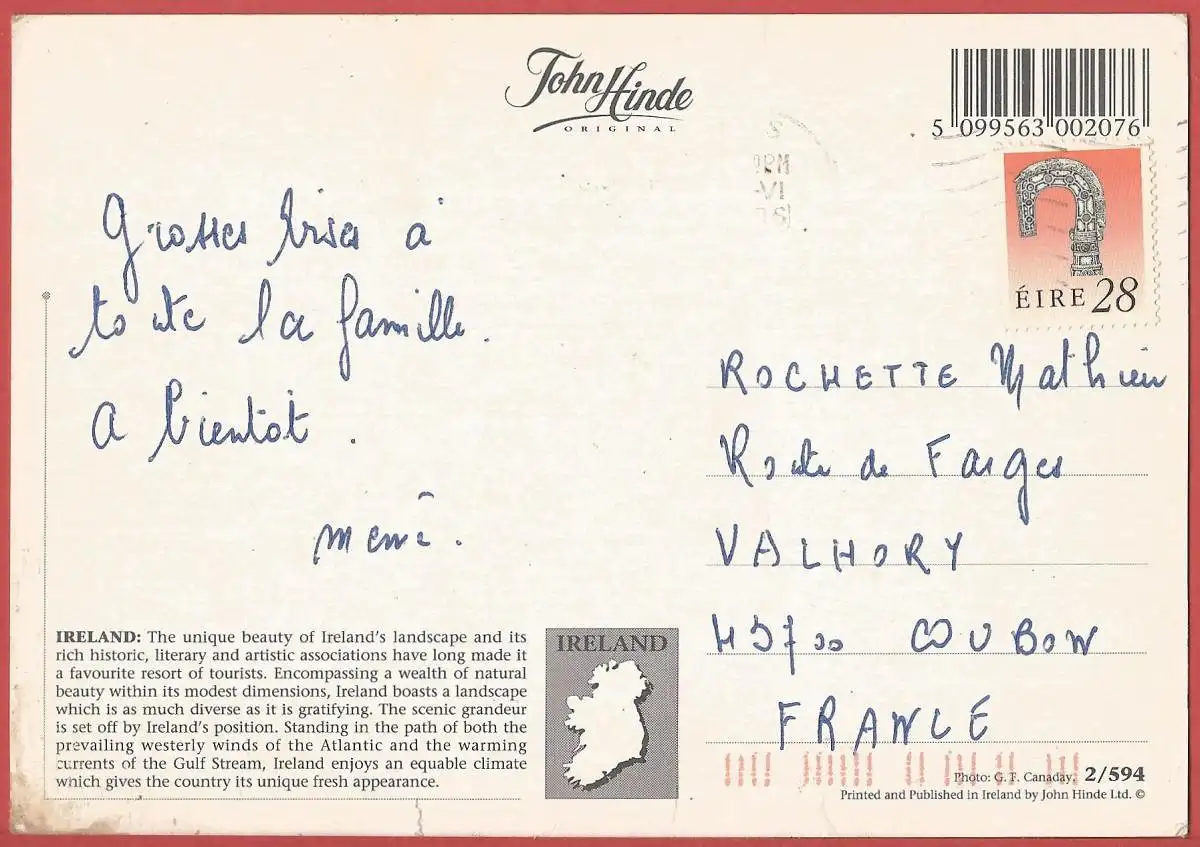 John Hinde
ORIGINAL
5 099563 002076
ÉIRE 28
Grosses bises à
toute la famille.
A bientôt.
mémé.
ROCHETTE Mathieu
Route de Farges
VALHORY
43700 COUBON
FRANCE
IRELAND: The unique beauty of Ireland's landscape and its
rich historic, literary and artistic associations have long made it
a favourite resort of tourists. Encompassing a wealth of natural
beauty within its modest dimensions, Ireland boasts a landscape
which is as much diverse as it is gratifying. The scenic grandeur
is set off by Ireland's position. Standing in the path of both the
prevailing westerly winds of the Atlantic and the warming
currents of the Gulf Stream, Ireland enjoys an equable climate
which gives the country its unique fresh appearance.
IRELAND
Photo: G. F. Canaday. 2/594
Printed and Published in Ireland by John Hinde Ltd. ©